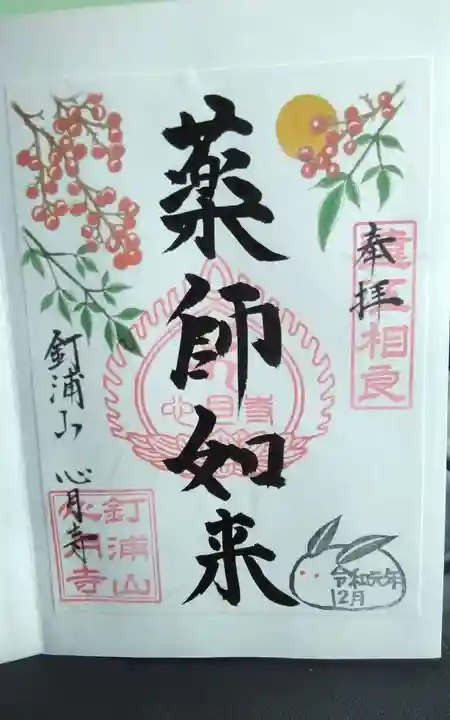 奉拝
相良
薬師如来
心月寺
釘浦山 心月寺
釘浦山
心月寺
令和元年
12月